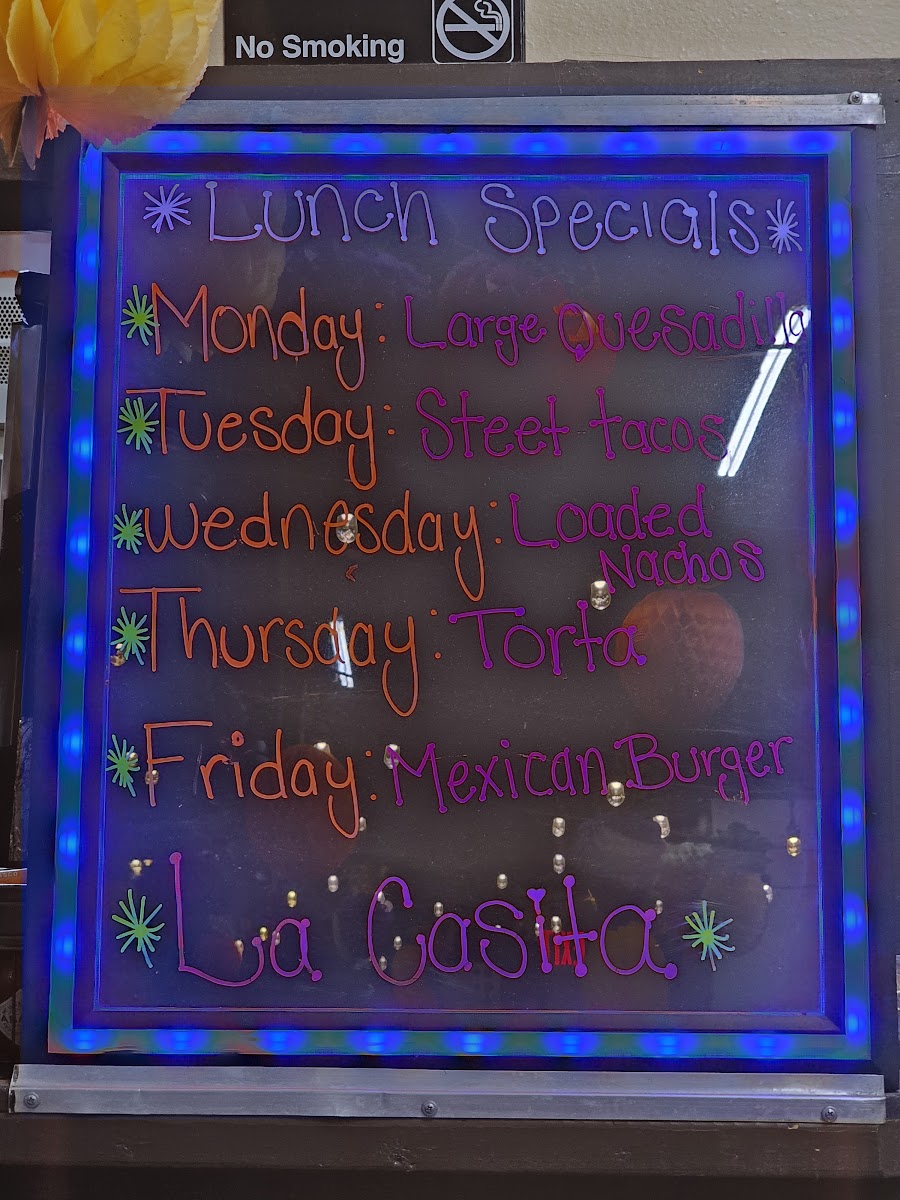 No Smoking
Lunch Specials
Monday: Large Quesadilla
Tuesday: Steet tacos
Wednesday: Loaded
Nachos
Thursday: Torta
Friday: Mexican Burger
La Casita